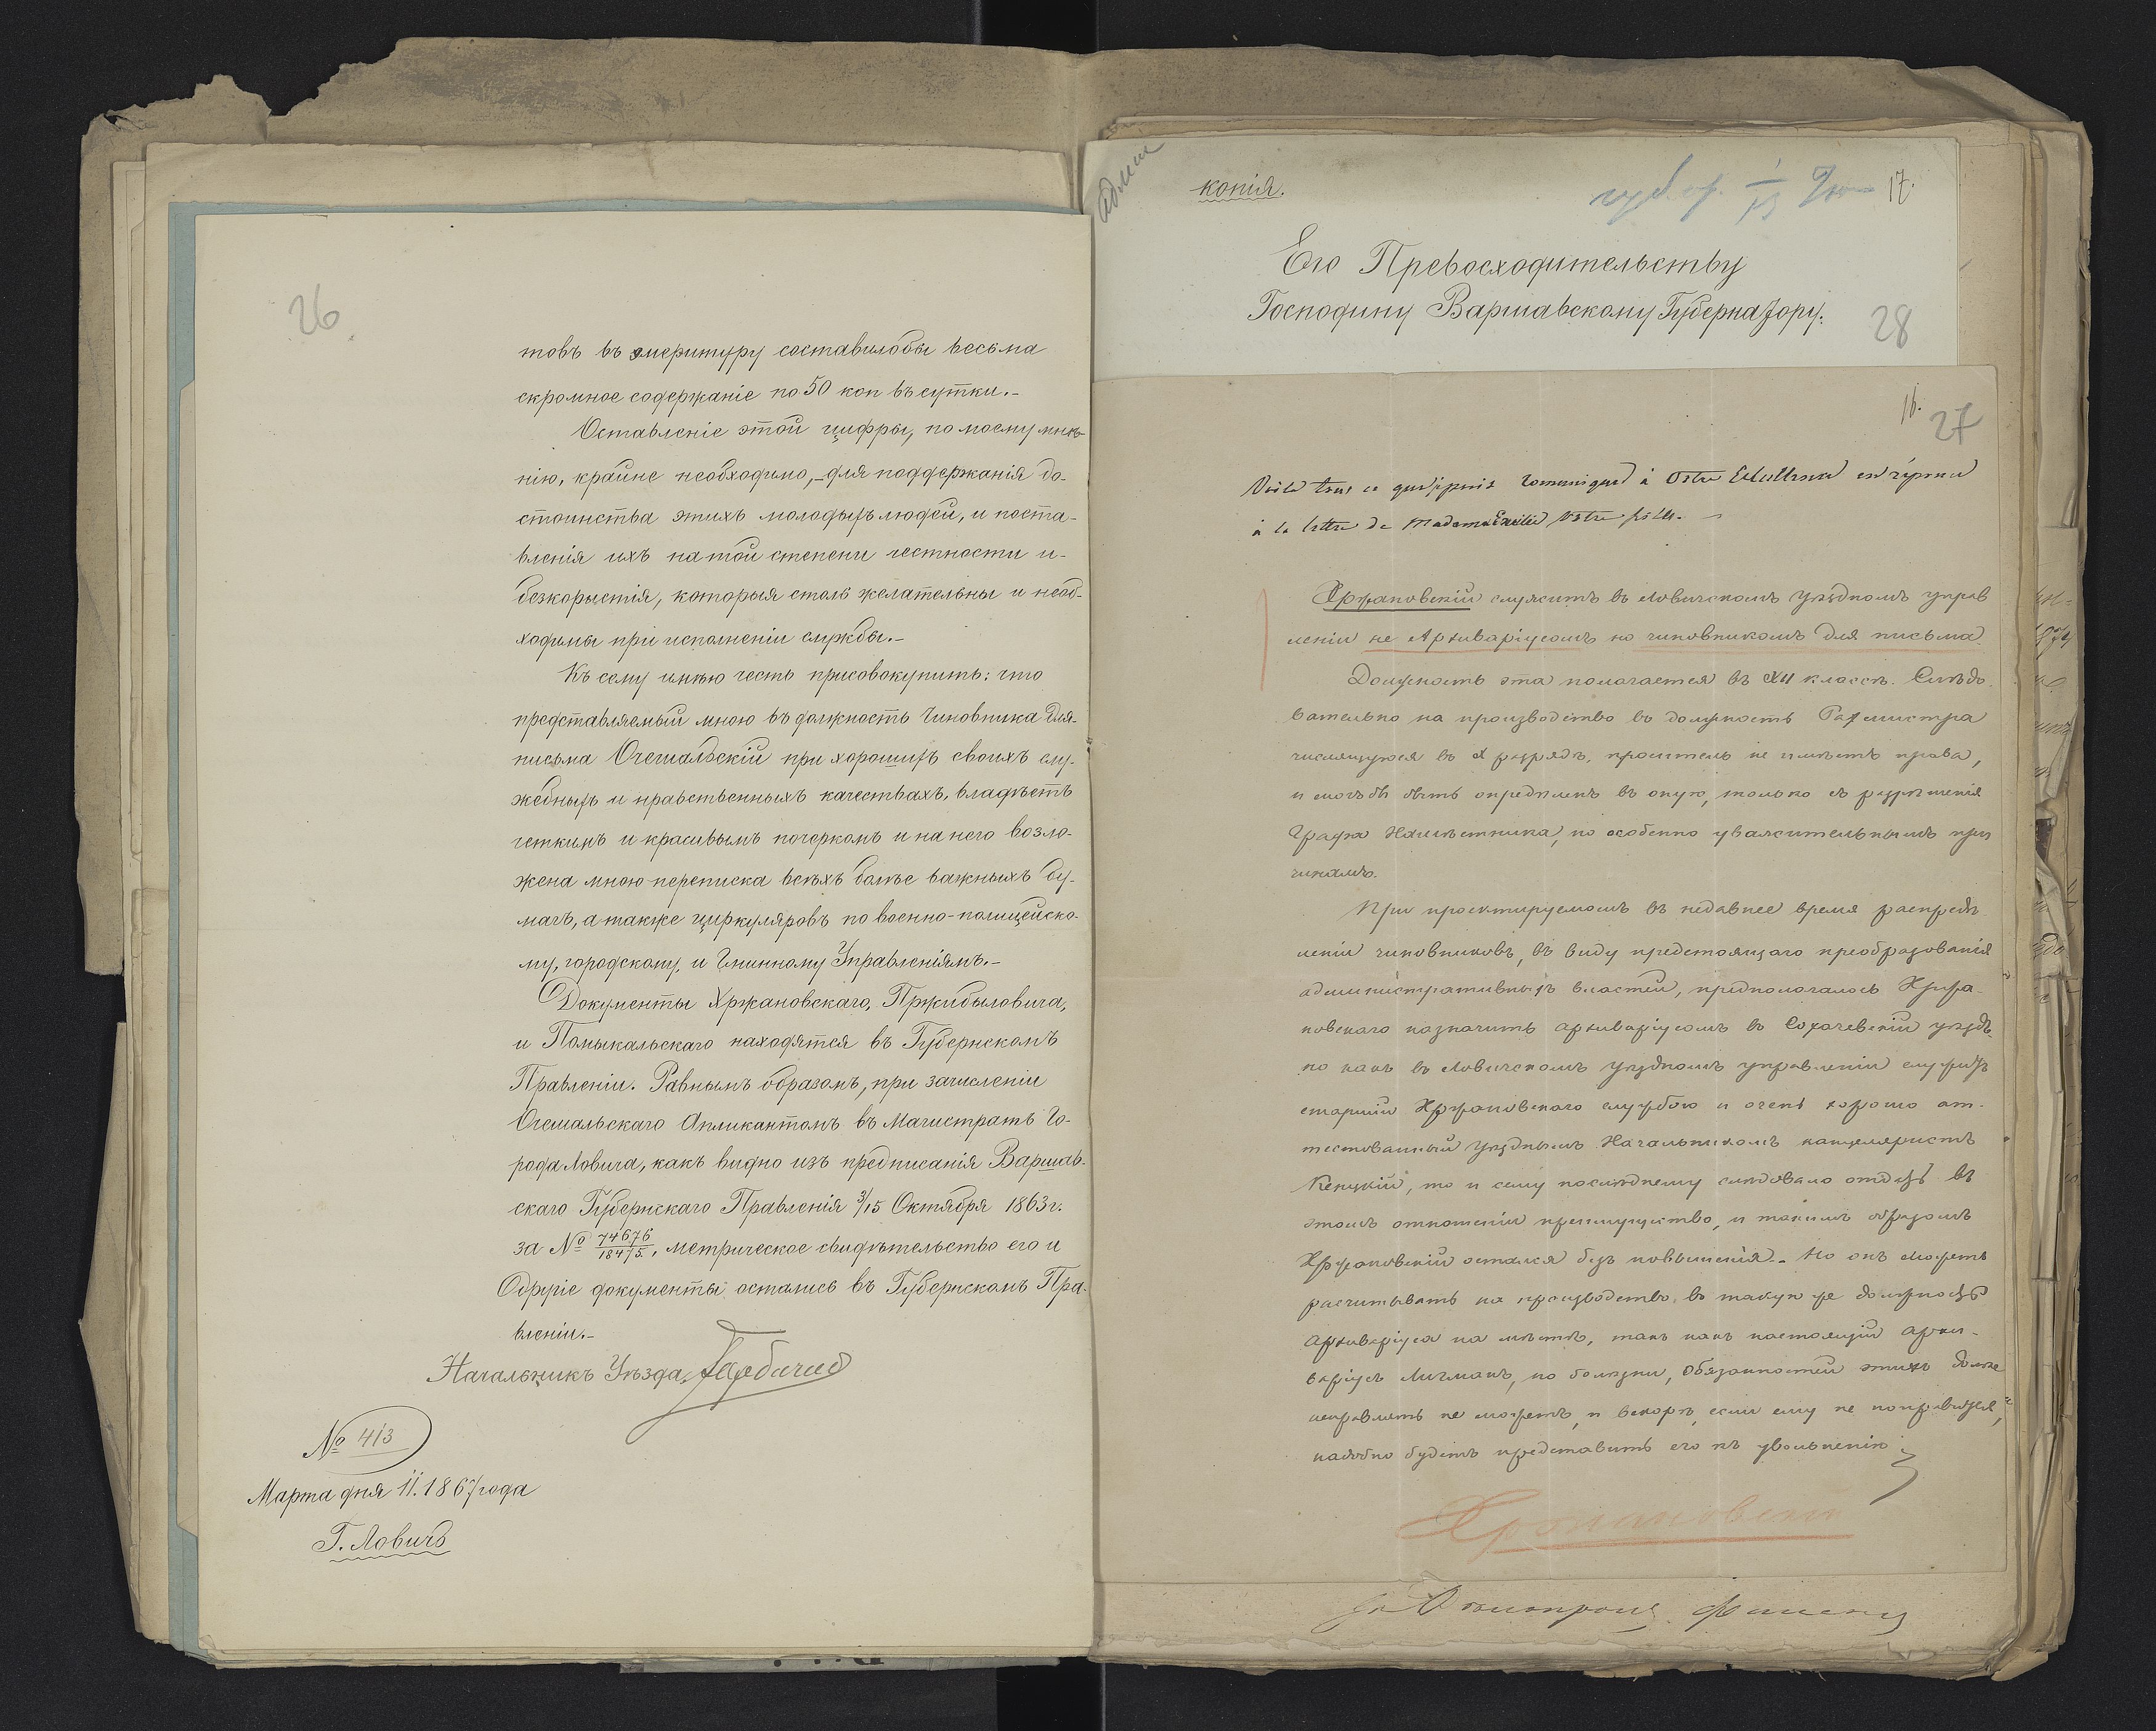 26
товъ въ эмеритуру составилобы весьма
скромное содержаніе по 50 коп въ сутки.-
Оставленіе этой цифры, по моему мнѣ-
нію, крайне необходимо,-для поддержанія до-
стоинства этихъ молодыхъ людей, и поста-
вленія ихъ на той степени честности и-
безкорыстія, которыя столь желательны и необ-
ходимы при исполненіи службы.-
Къ сему имѣю честь присовокупить: что
представляемый мною въ должность Чиновника для-
письма Очемальскій при хорошихъ своихъ слу-
жебныхъ и нравственныхъ качествахъ, владѣетъ
четкимъ и красивымъ почеркомъ и на него возло-
жена мною переписка всѣхъ болѣе важныхъ бу-
магъ, а также циркуляровъ по военно-полицейско-
му, городскому, и Гминному Управленіямъ.-
Документы Хржановскаго, Пржибыловича,
и Помыкальскаго находятся въ Губернскомъ
Правленіи. Равнымъ образомъ, при зачисленіи
Очемальскаго Апликантомъ въ Магистратъ Го-
рода Ловича, какъ видно изъ предписанія Варшав-
скаго Губернскаго Правленія 3/15 Октября 1863 г.
за № 74676/18475, метрическое свидѣтельство его и
другіе документы остались въ Губернскомъ Пра-
вленіи.-
Начальникъ Уѣзда,
№ 413
Марта дня 11. 1867 года
Г. Ловичъ
копія.
17.
Его Превосходительству
Господину Варшавскому Губернатору.
28
16.
27
Voilà tout ce que puis communiqué à Votre Excellence en réponse
à la lettre de Mademoiselle Votre fille.
Хржановскій служитъ въ Ловичскомъ Уѣздномъ управ
леніи не Архиваріусомъ но чиновникомъ для письма
Должность эта полагается въ XII классѣ. Слѣдо
вательно на производство въ должность
числящуюся въ X разрядѣ, проситель не имѣетъ права,
и могъ бы быть опредѣленъ въ оную, только съ разрѣшенія
Графа Намѣстника, по особенно уважительнымъ при
чинамъ.
При проектируемомъ въ недавнее время распредѣ
леніи чиновниковъ, въ виду предстоящаго преобразованія
административныхъ властей, предполагалось Хржа-
новскаго назначить архиваріусомъ въ Сохачевскій уѣздъ
но какъ въ Ловичскомъ Уѣздномъ управленіи служитъ
старшій Хржановскаго службою и очень хорошо ат-
тестованный Уѣзднымъ Начальникомъ канцеляристъ
Кенцкій, то и сему послѣднему слѣдовало отдать въ
этомъ отношеніи преимущество, и такимъ образомъ
Хржановскій остался безъ повышенія.- Но онъ можетъ
расчитывать на производство въ такую же должность
архиваріуса на мѣстѣ, такъ какъ настоящій архи-
варіусъ Личманъ, по болѣзни, обязанностей этихъ долѣе
исправлять не можетъ, и вскорѣ, если ему не поправится,
надобно будетъ представить его къ увольненію
Хржановскій